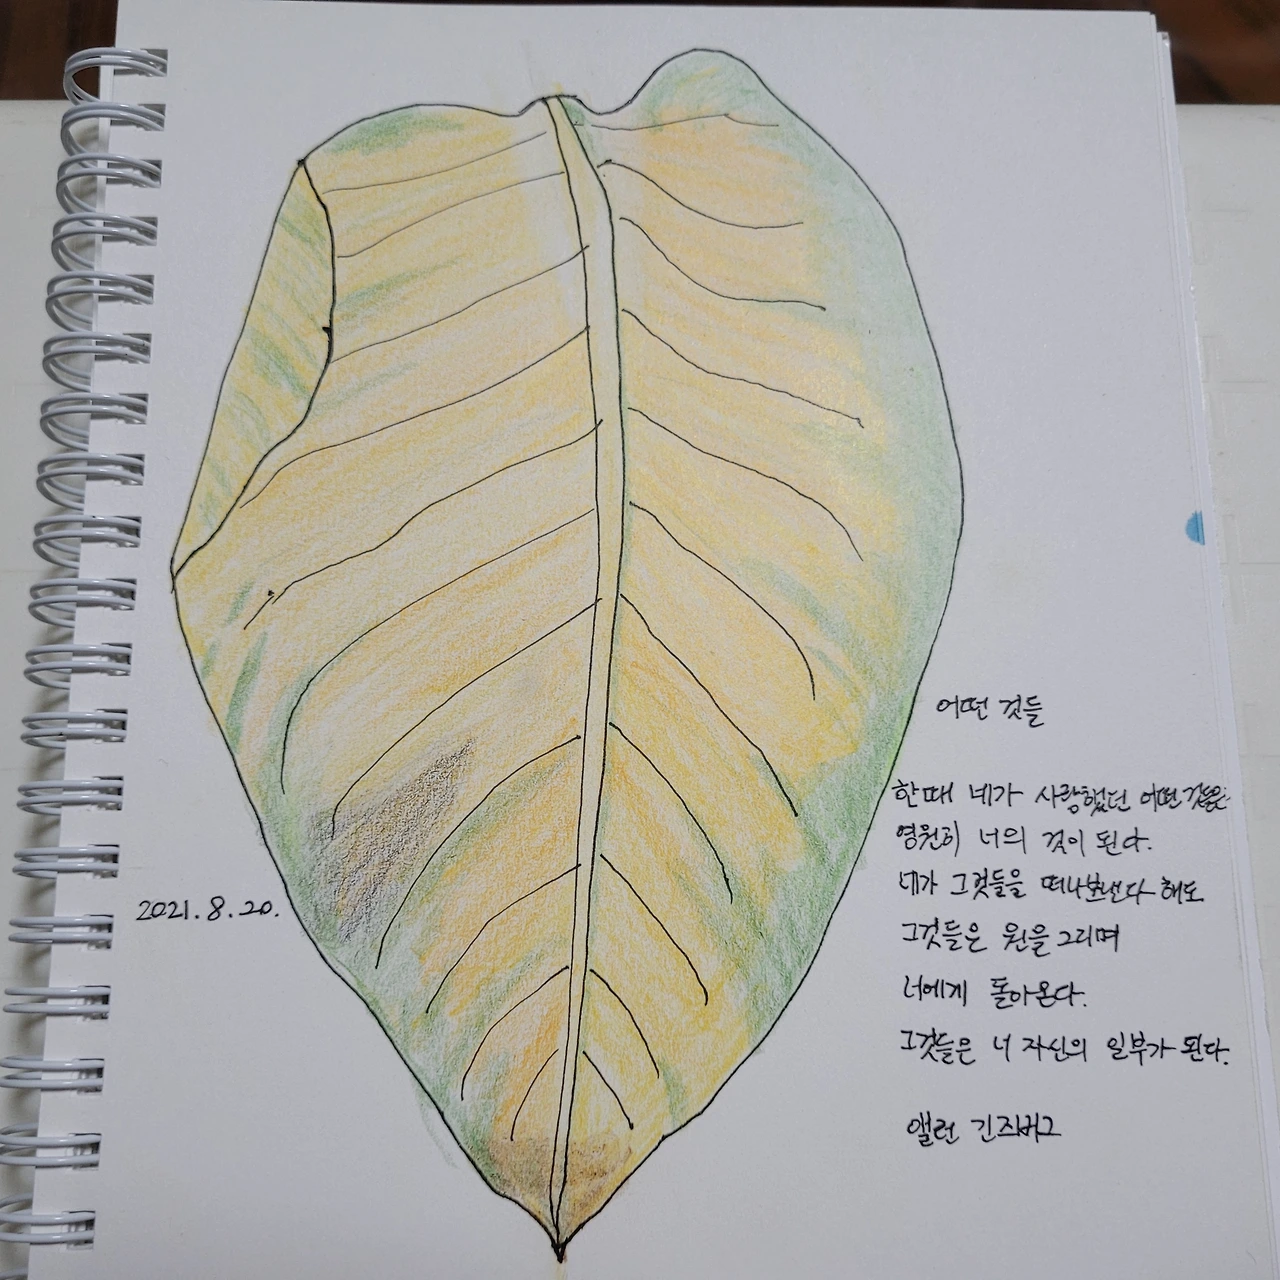 어떤 것들
한때 네가 사랑했던 어떤 것들은
영원히 너의 것이 된다.
네가 그것들을 떠나보낸다 해도
그것들은 원을 그리며
너에게 돌아온다.
그것들은 너 자신의 일부가 된다.
앨런 긴즈버그
2021.8.20.